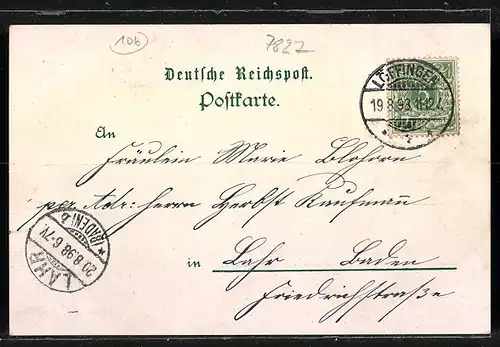 106
7827
Deutsche Reichspost.
Postkarte.
LÖFFINGEN
19 8 98 11-12V
An
Fräulein Marie Blohorn
per Adr: Herrn Herbst Kaufmann
in Lahr Baden
Friedrichstraße
LAHR
*(BADEN) b
20 8.98 6-7V